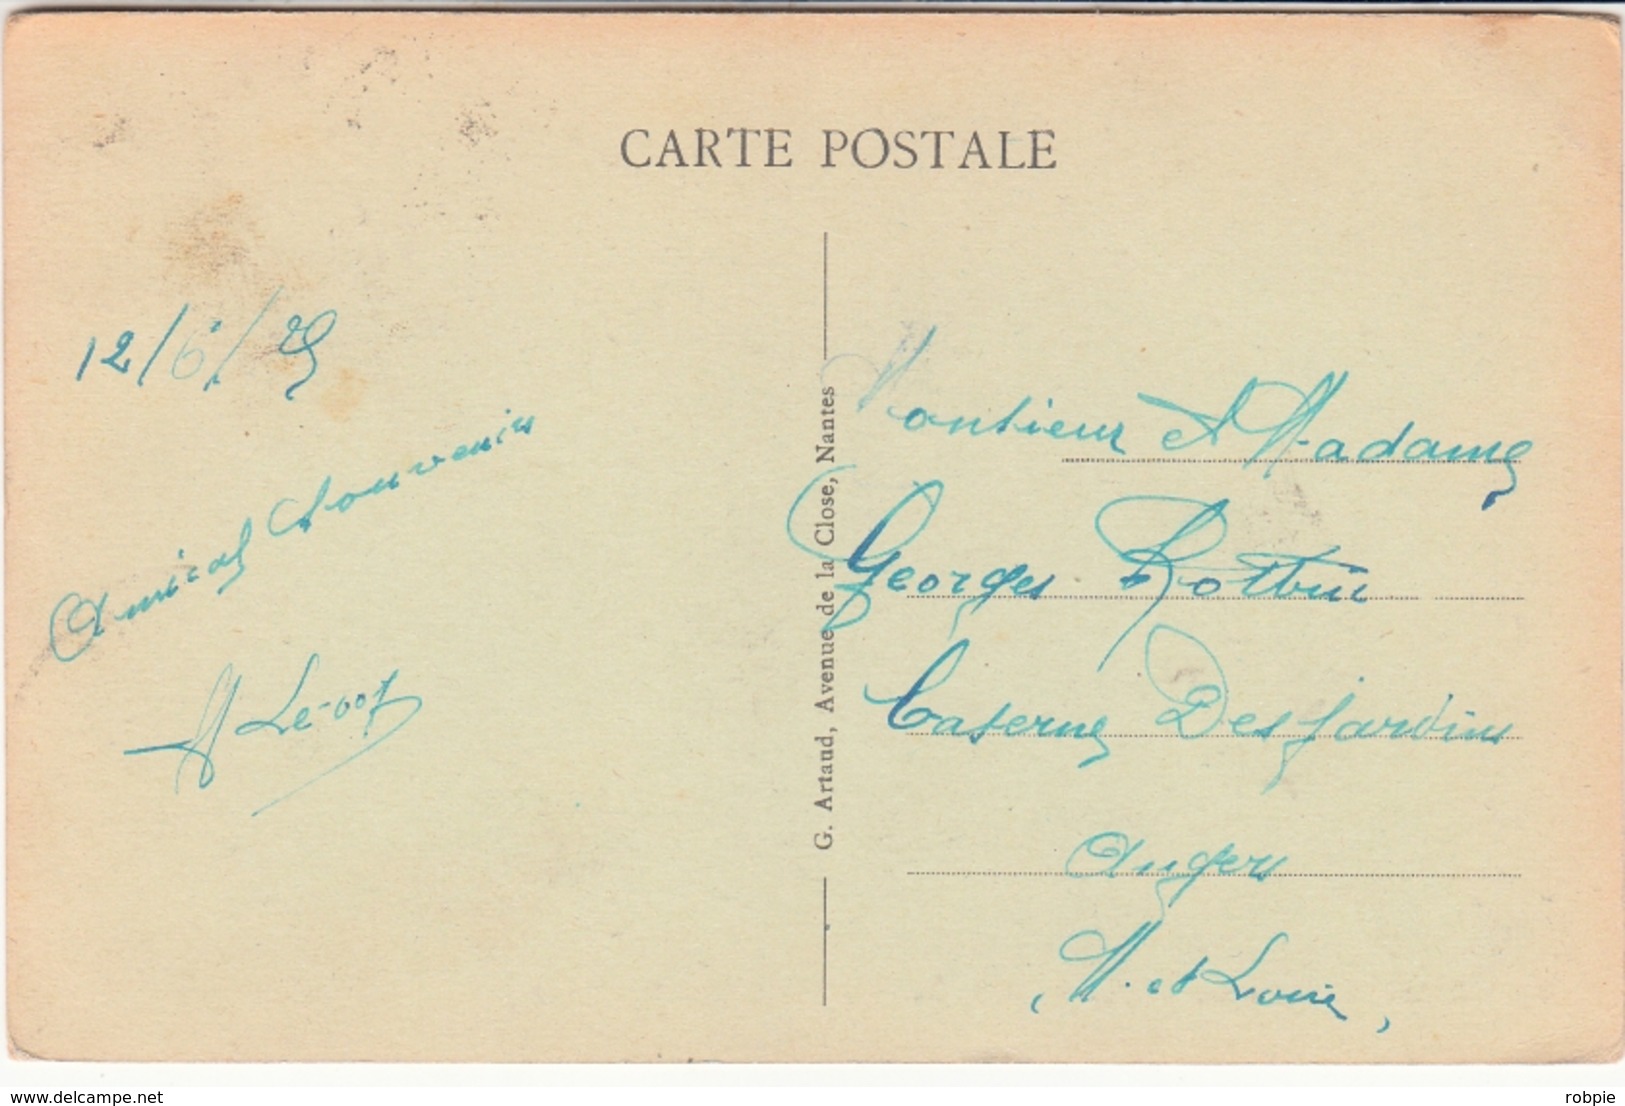 CARTE POSTALE
12/6/29
Amical Souvenir
G. Artaud, Avenue de la Close, Nantes
Monsieur et Madame
Georges
Caserne Desjardins
Angers
(M. et Loire)
www.delcampe.net
robpie